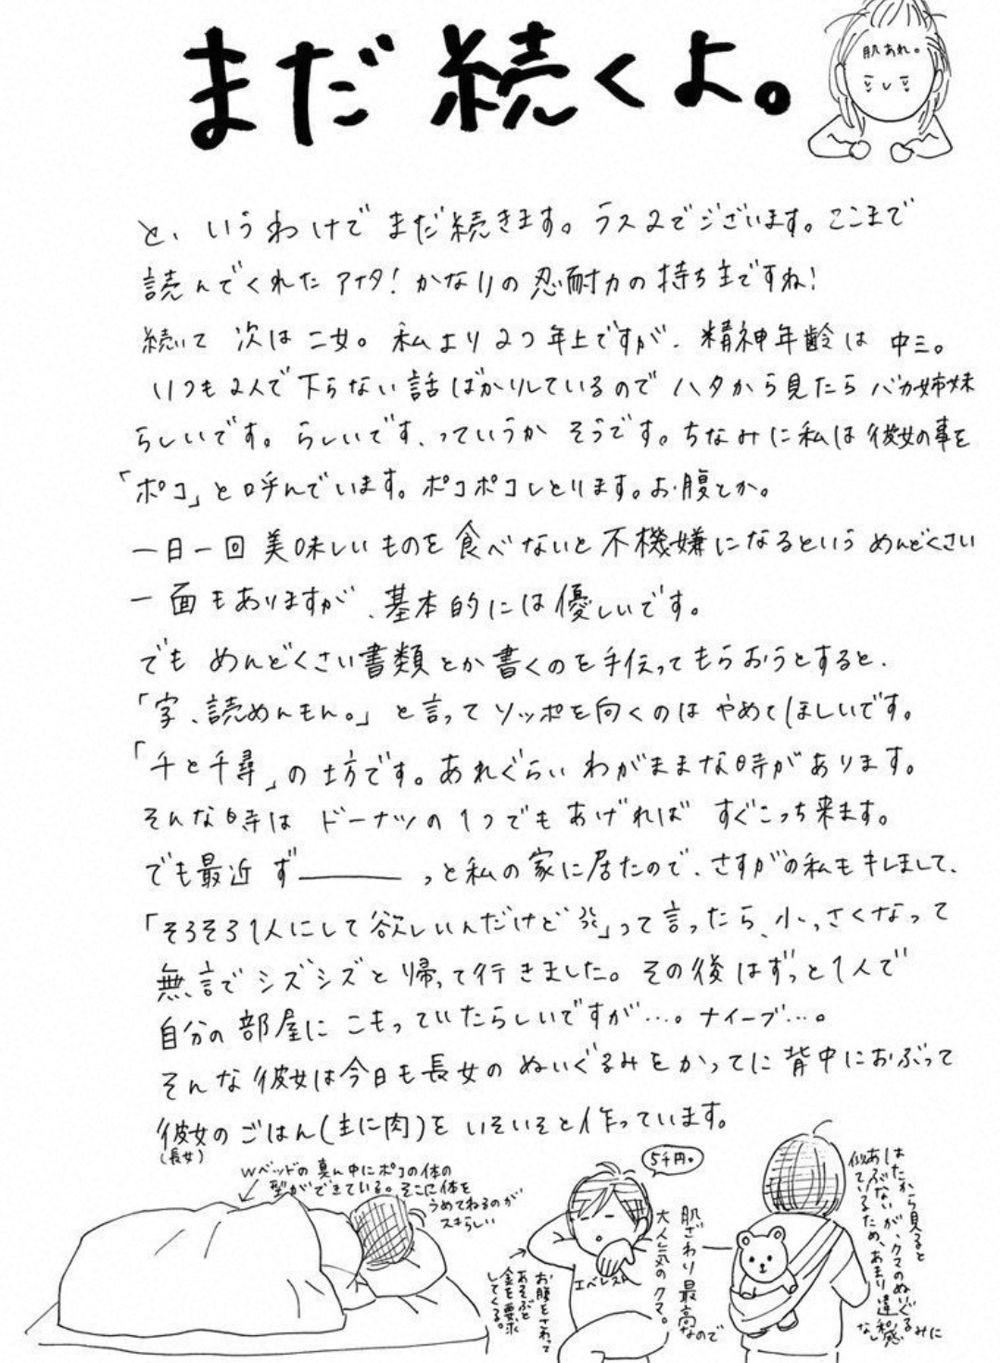 まだ続くよ。
肌あれ。
と、いうわけでまだ続きます。ラス2でございます。ここまで
読んでくれたアイタ！かなりの忍耐力の持ち主ですね！
続いて次は二女。私より2つ年上ですが、精神年齢は中三。
いつも2人で下らない話ばかりしているのでハタから見たらバカ姉妹
らしいです。らしいです、っていうかそうです。ちなみに私は彼女の事を
「ポコ」と呼んでいます。ポコポコしとります。お腹とか。
一日一回美味しいものを食べないと不機嫌になるというめんどくさい
一面もありますが、基本的には優しいです。
でもめんどくさい書類とか書くのを手伝ってもらおうとすると、
「字、読めんもん。」と言ってソッポを向くのはやめてほしいです。
「千と千尋」の坊です。あれぐらいわがままな時があります。
そんな時はドーナツの1つでもあげればすぐこっち来ます。
でも最近ず――――っと私の家に居たので、さすがの私もキレまして、
「そろそろ1人にして欲しいんだけど」って言ったら、小っさくなって
無言でシズシズと帰って行きました。その後はずっと1人で
自分の部屋にこもっていたらしいですが…。ナイーブ…。
そんな彼女は今日も長女のぬいぐるみをかってに背中におぶって
彼女のごはん(主に肉)をいそいそと作っています。
(長女)
Wベッドの真ん中にポコの体の
型ができている。そこに体を
うめてねるのが
スキらしい
5千円。
エベレスト
お腹をさわって
あそぶと
金を要求
してくる。
肌ざわり最高なので
大人気のクマ。
はたから見ると
あぶないが、クマのぬいぐるみに
似ているため、あまり違和感
なし